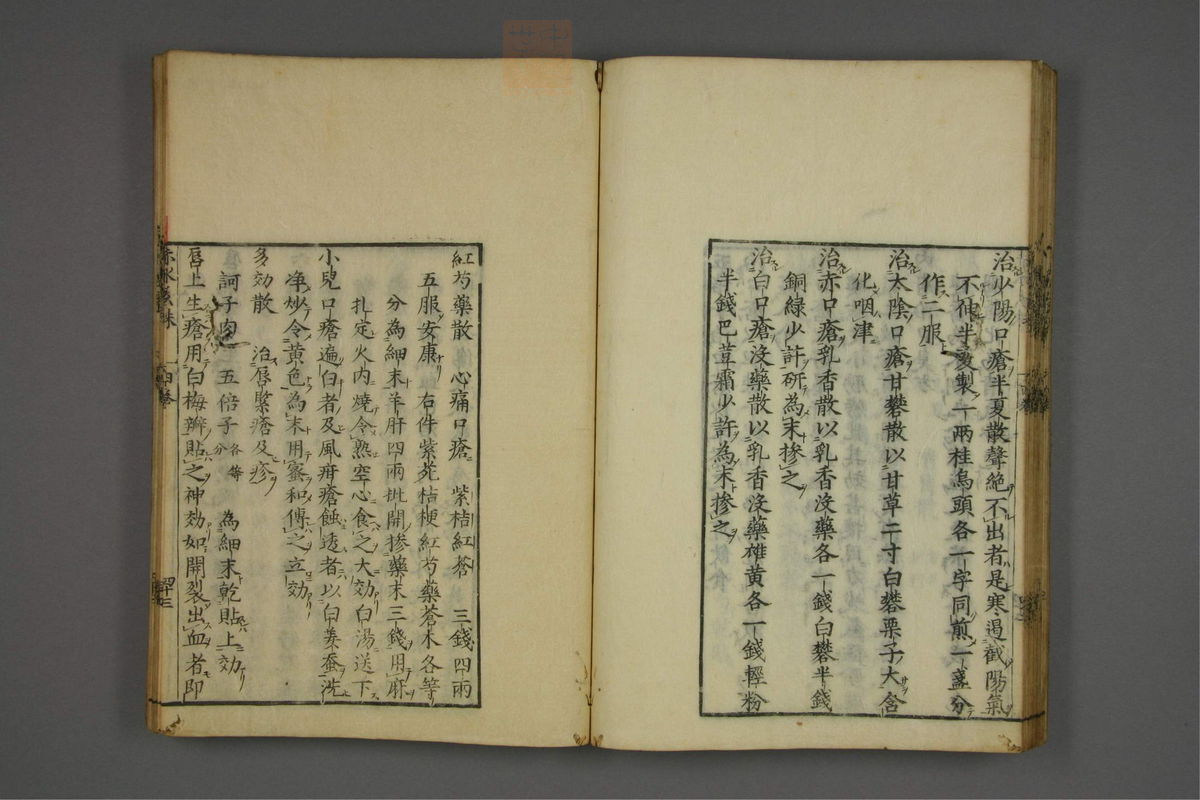 治少陽口瘡半夏散聲絕不出者是寒遏截陽氣
不伸半夏製一兩桂烏頭各一字同煎一盞分
作二服
治太陰口瘡甘礬散以甘草二寸白礬栗子大含
化咽津
治赤口瘡乳香散以乳香沒藥各一錢白礬半錢
銅綠少許研為末摻之
治白口瘡沒藥散以乳香沒藥雄黃各一錢輕粉
半錢巴荳霜少許為末摻之
紅芍藥散 心痛口瘡 紫桔紅蒼 三錢四兩
五服安康 右件紫菀桔梗紅芍藥蒼朮各等
分為細末羊肝四兩批開摻藥末三錢用麻
扎定火內燒令熟空心食之大効白湯送下
小兒口瘡遍白者及風疳瘡蝕透者以白姜蚕洗
淨炒令黃色為末用蜜和傅之立効
多効散 治唇緊瘡及疹
訶子肉 五倍子各等分 為細末乾貼上効
唇上生瘡用白梅瓣貼之神効如開裂出血者即
四十三